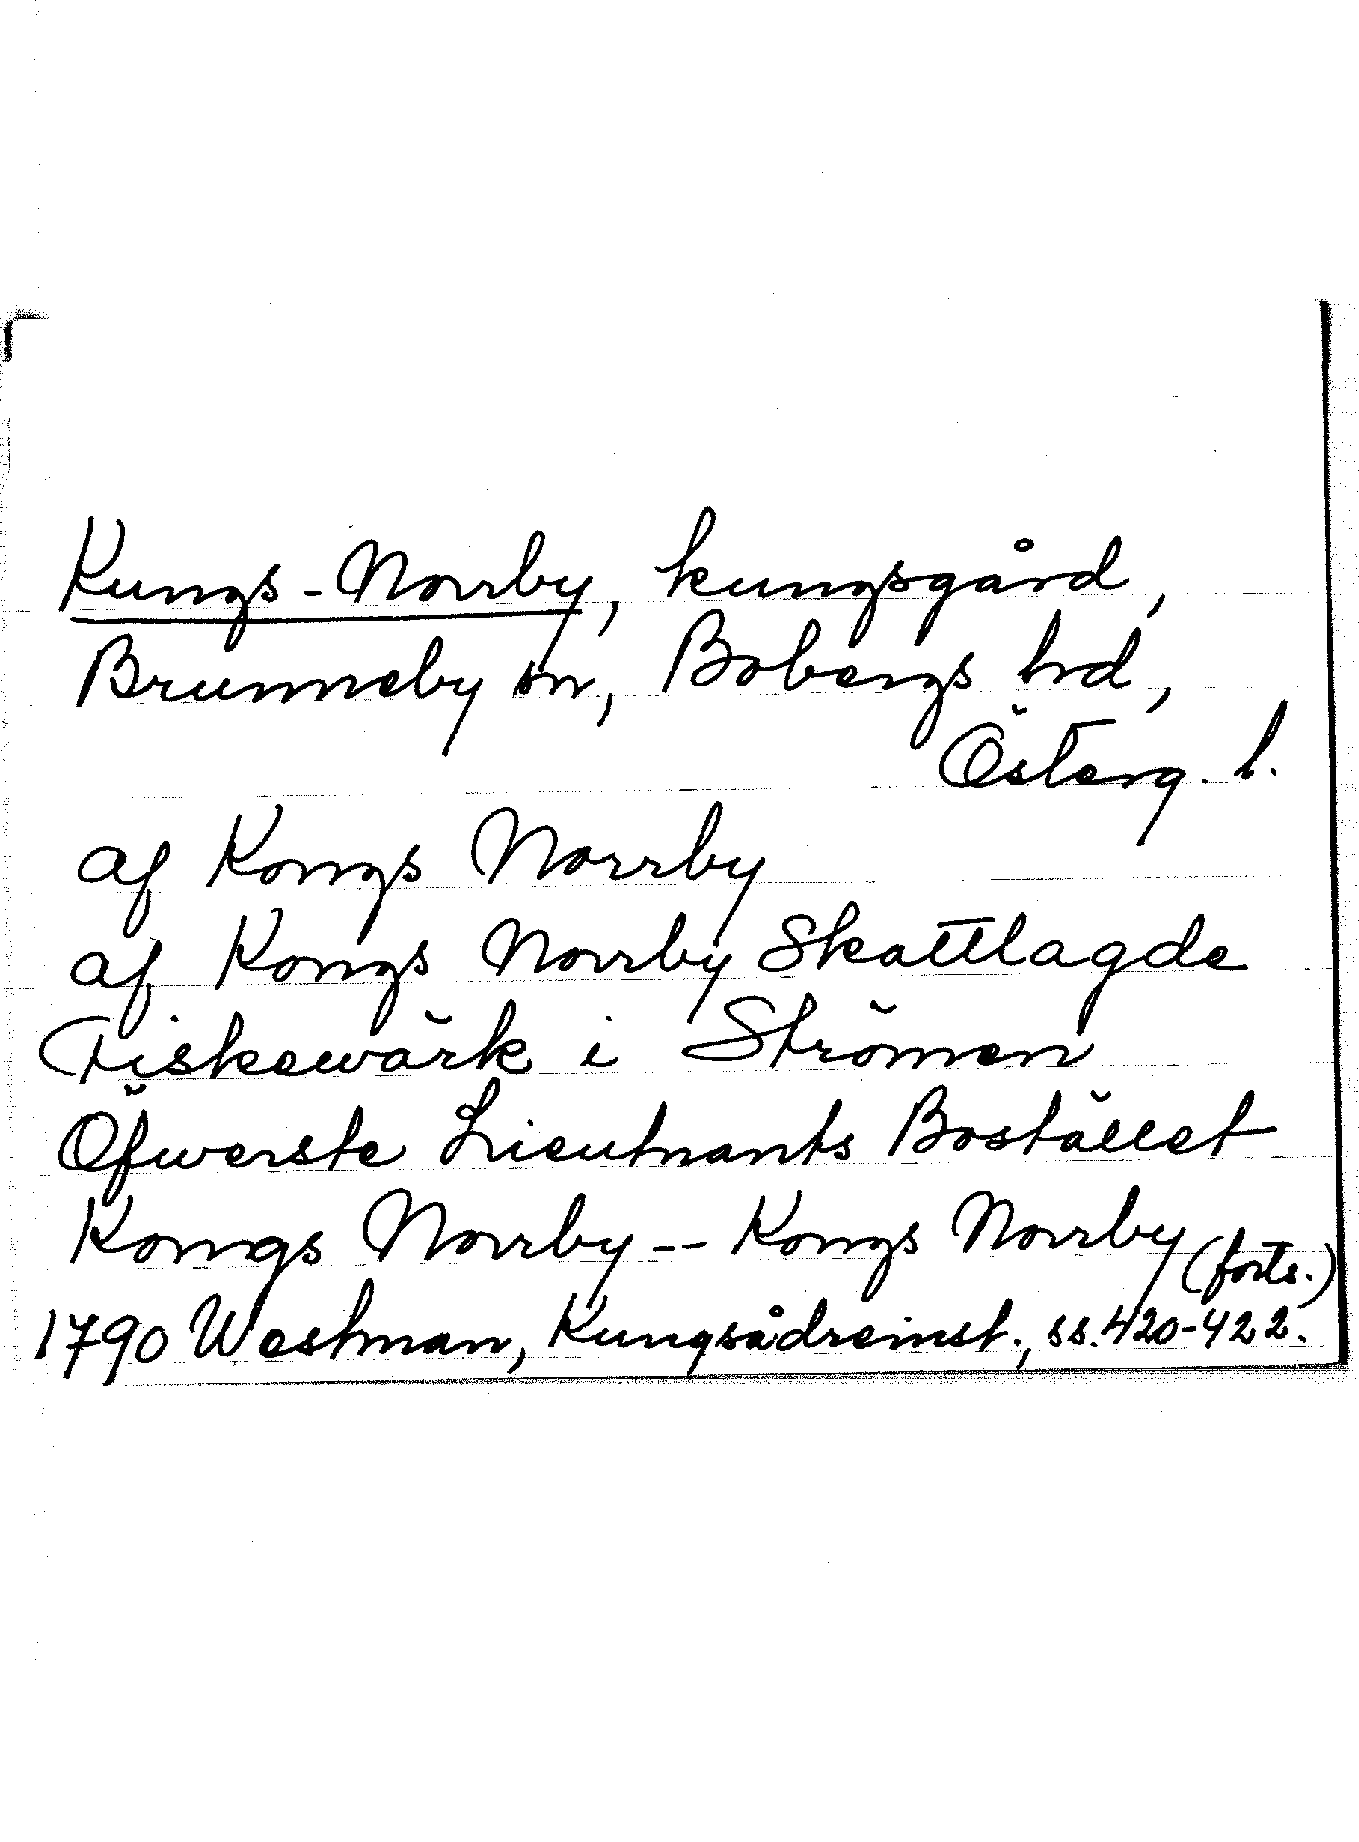 Kungs-Norrby, kungsgård,
Brunneby sn, Bobergs hd,
Österg. l.
af Kongs Norrby
af Kongs Norrby Skattlagde
Fiskewärk i Strömen
Öfwerste Lieutnants Bostället
Kongs Norrby -- Kongs Norrby
(forts.)
1790 Westman, Kungsådreinst., ss. 420-422.